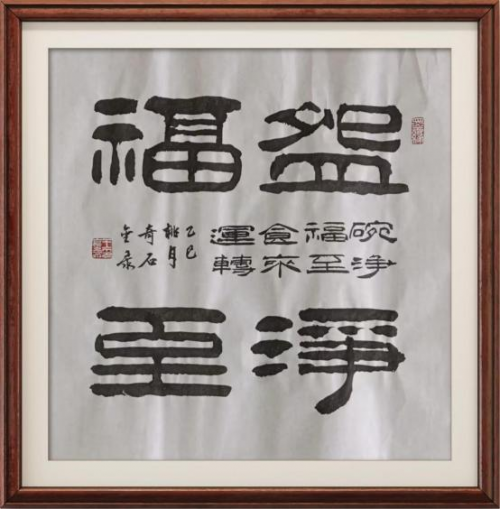 盌淨
福至
碗淨
福至
食來
運轉
乙巳
桃月
奇石